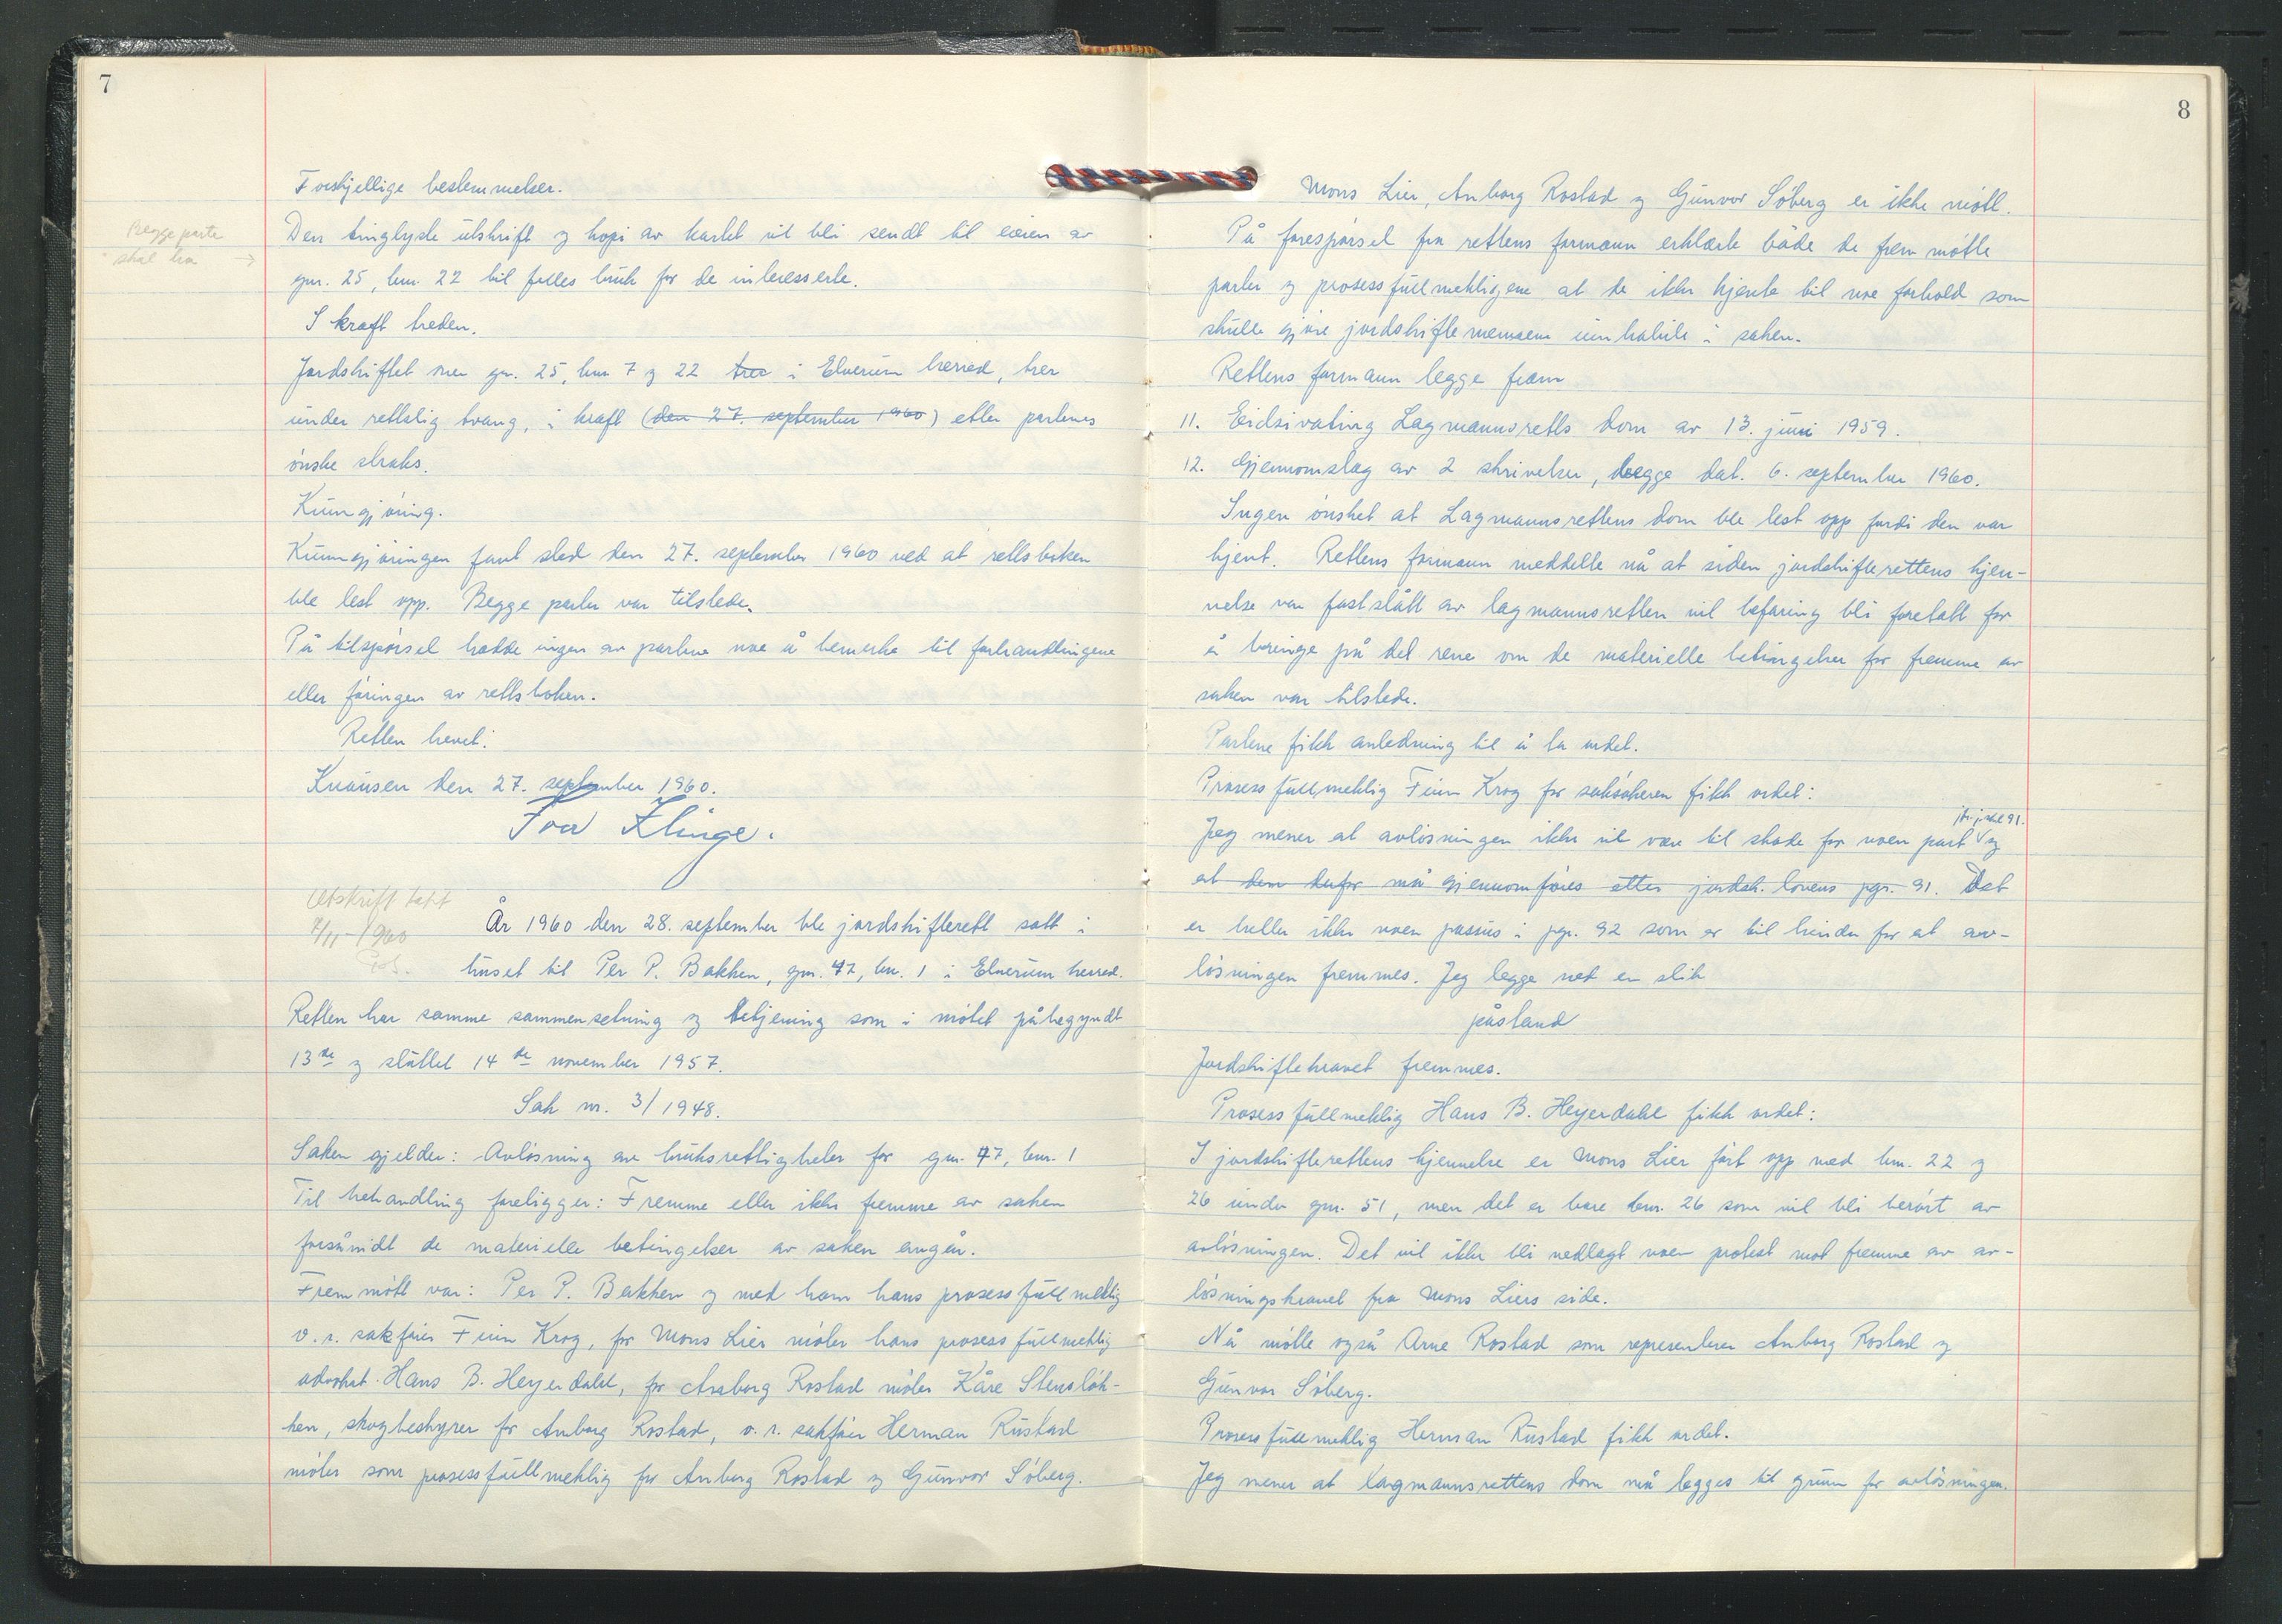 7
Forskjellige bestemmelser.
Begge parte
skal ha →
Den tinglyste utskrift og kopi av kartet vil bli sendt til eieren av
gnr. 25, bnr. 22 til felles bruk for de interesserte.
I kraft treden.
Jordskiftet over gnr. 25, bnr 7 og 22 trer i Elverum herred, trer
under rettslig tvang, i kraft (den 27. september 1960) etter partenes
ønske straks.
Kunngjøring.
Kunngjøringen fant sted den 27. september 1960 ved at rettsboken
ble lest opp. Begge parter var tilstede.
På tilspørsel hadde ingen av partene noe å bemerke til forhandlingene
eller føringen av rettsboken.
Retten hevet.
Knausen den 27. september 1960.
Ivar Klinge.
Utskrift tatt
7/11-1960
År 1960 den 28. september ble jordskifterett satt i
huset til Per P. Bakken, gnr. 47, bnr. 1 i Elverum herred.
Retten har samme sammensetning og betjening som i møtet påbegyndt
13de og sluttet 14de november 1957.
Sak nr. 3/1948.
Saken gjelder: Avløsning av bruksrettigheter for gnr. 47, bnr. 1
Til behandling foreligger: Fremme eller ikke fremme av saken
forsåvidt de materielle betingelser av saken angår.
Fremmøtt var: Per P. Bakken og med ham hans prosessfullmektig
o.r. sakfører Finn Krog, for Mons Lier møter hans prosessfullmektig
advokat Hans B. Heyerdahl, for Anborg Rostad møter Kåre Stensløk-
ken, skogbestyrer for Anborg Rostad, o.r. sakfører Herman Rustad
møter som prosessfullmektig for Anborg Rostad og Gunvor Søberg.
8
Mons Lier, Anborg Rostad og Gunvor Søberg er ikke møtt.
På forespørsel fra rettens formann erklærte både de frem møtte
parter og prosessfullmektigene at de ikke kjente til noe forhold som
skulle gjøre jordskiftemennene innhabile i saken.
Rettens formann legge fram
11. Eidsivating Lagmannsretts dom av 13. juni 1959.
12. Gjennomslag av 2 skrivelser, begge dat. 6. september 1960.
Ingen ønsket at Lagmannsrettens dom ble lest opp fordi den var
kjent. Rettens formann meddelte nå at siden jordskifterettens kjen-
nelse var fastslått av lagmannsretten vil befaring bli foretatt for
å bringe på det rene om de materielle betingelser for fremme av
saken var tilstede.
Partene fikk anledning til å ta ordet.
Prosessfullmektig Finn Krog for saksøkeren fikk ordet:
Jeg mener at avløsningen ikke vil være til skade for noen part og
at den derfor må gjennomføres etter jordsk. lovens pgr. 91. Det
er heller ikke noen passus i pgr. 92 som er til hinder for at av-
løsningen fremmes. Jeg legge ned en slik
påstand
Jordskiftekravet fremmes.
Prosessfullmektig Hans B. Heyerdahl fikk ordet:
I jordskifterettens kjennelse er Mons Lier ført opp med bnr. 22 og
26 under gnr. 51, men det er bare bnr. 26 som vil bli berørt av
avløsningen. Det vil ikke bli nedlagt noen protest mot fremme av av-
løsningskravet fra Mons Liers side.
Nå møtte også Arne Rostad som representerer Anborg Rostad og
Gunvor Søberg.
Prosessfullmektig Herman Rustad fikk ordet.
Jeg mener at lagmannsrettens dom må legges til grunn for avløsningen.